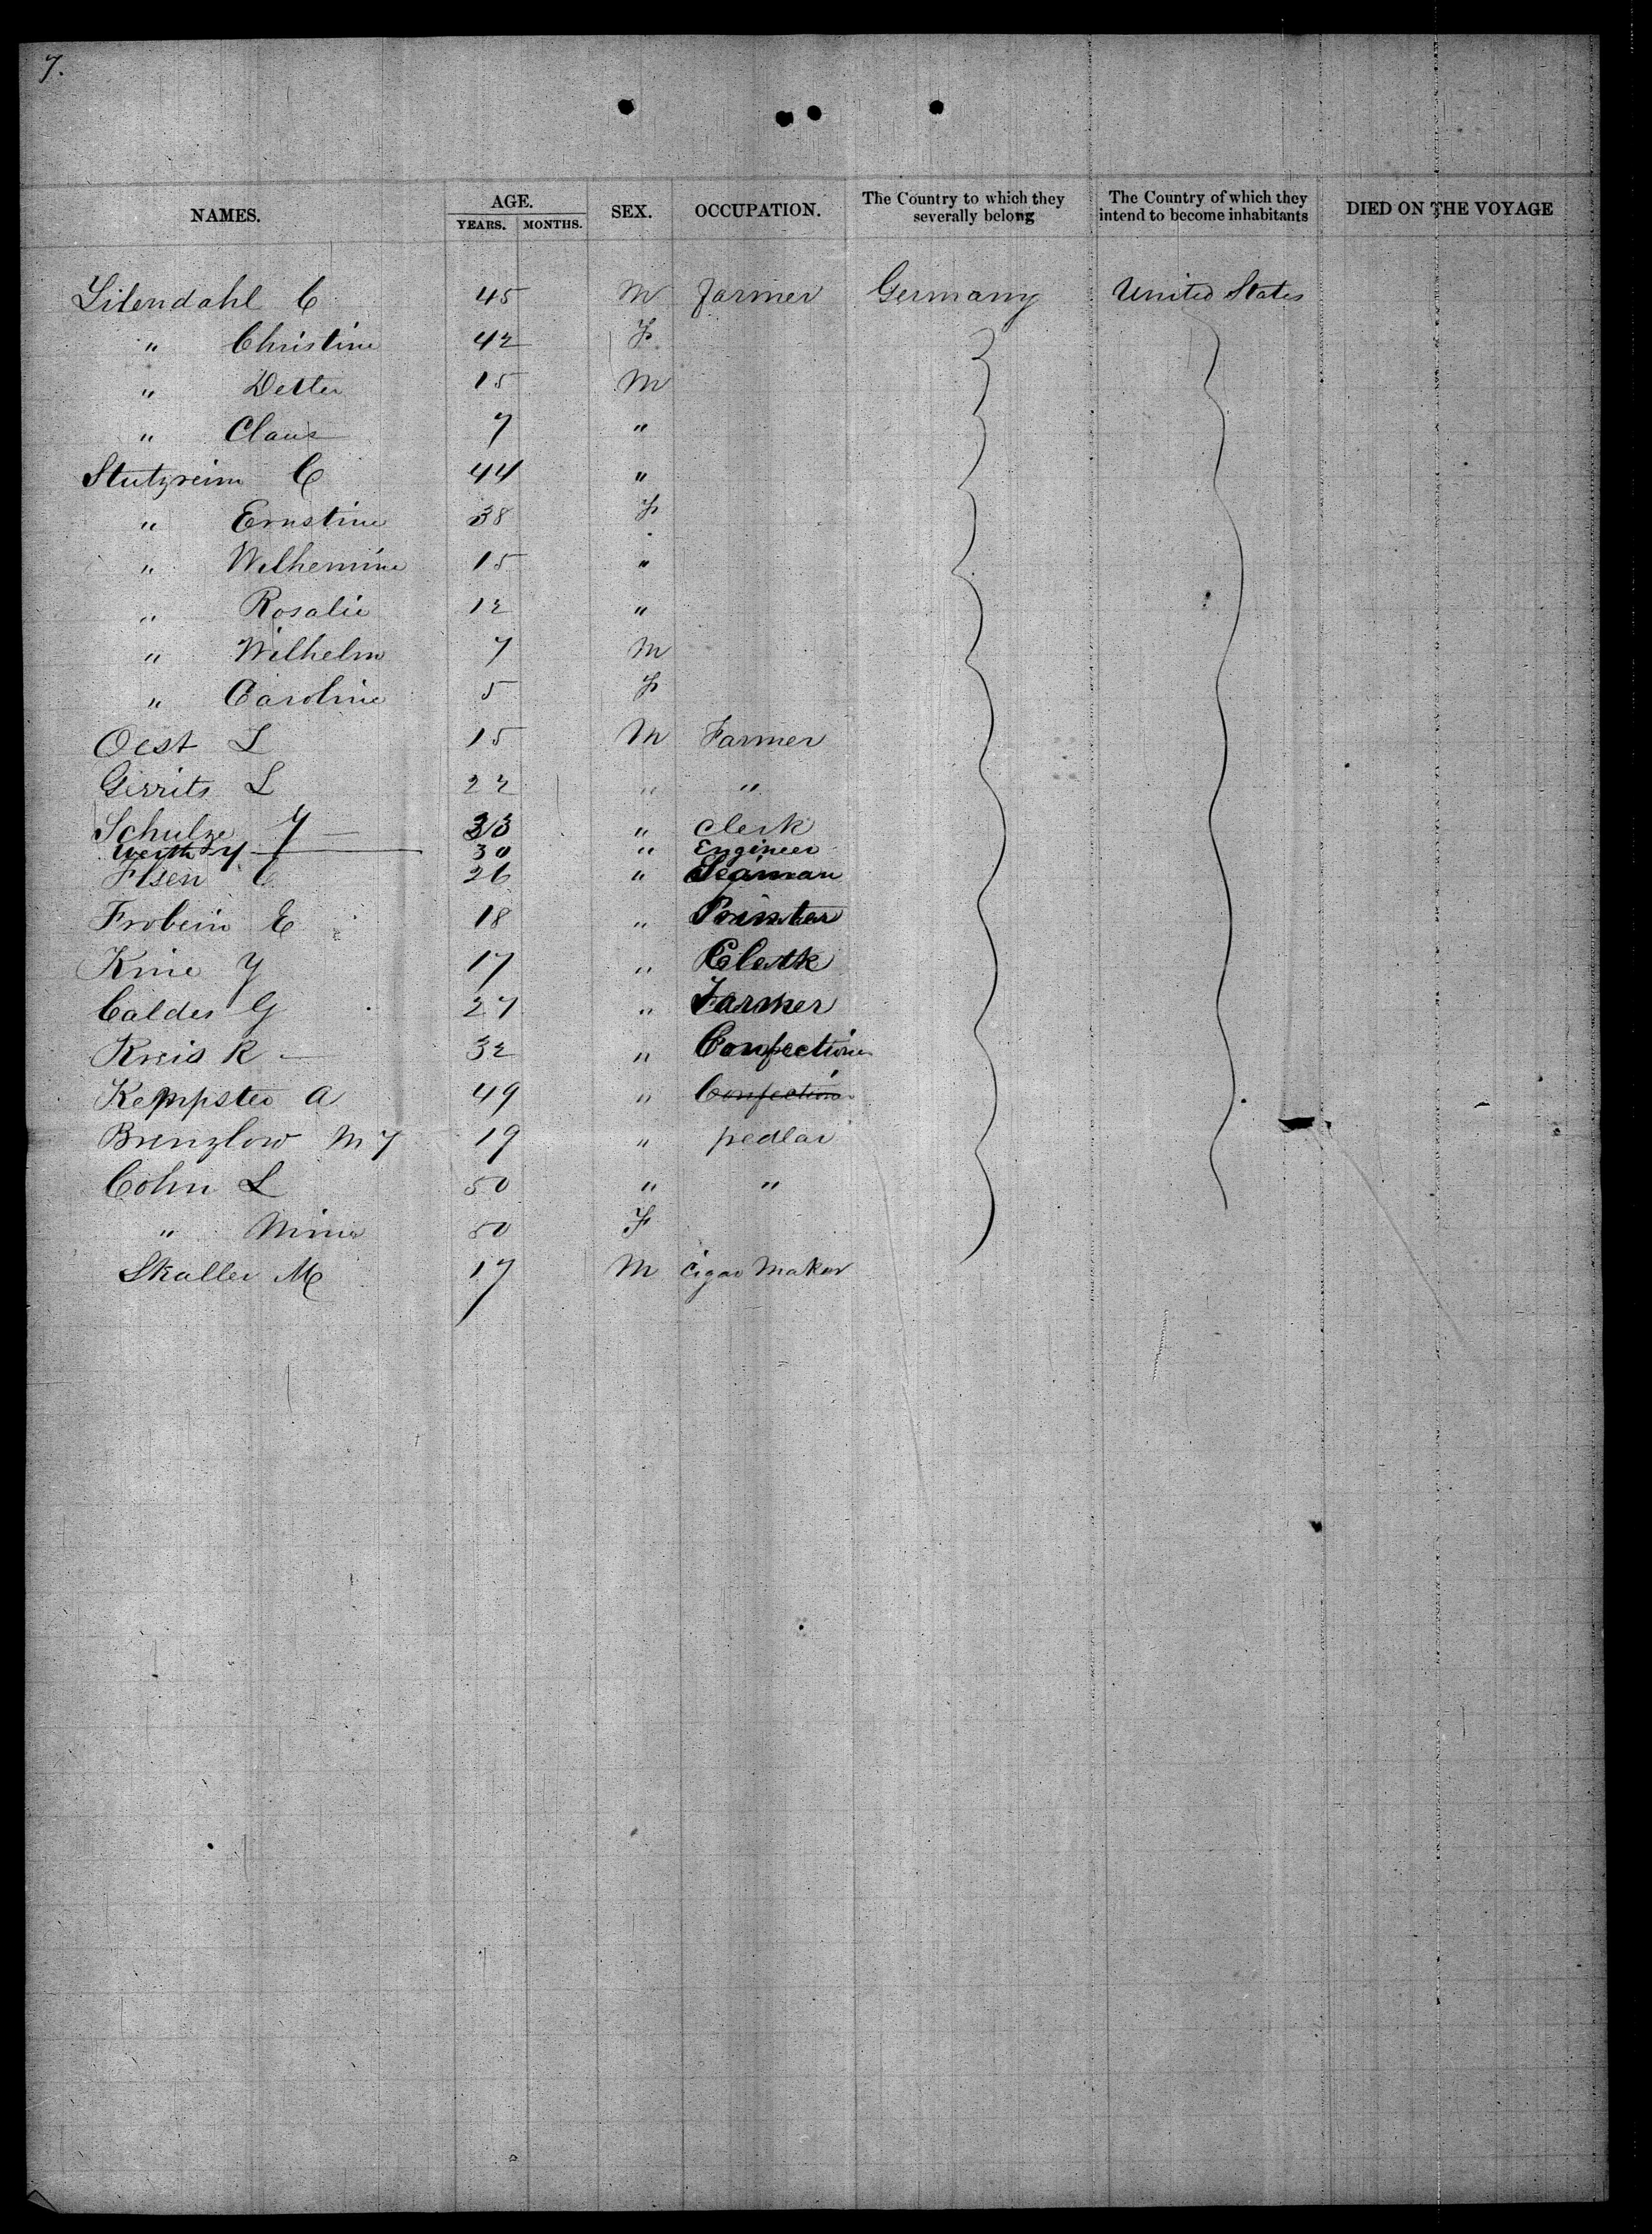 7.
NAMES. AGE. YEARS. MONTHS. SEX. OCCUPATION. The Country to which they severally belong The Country of which they intend to become inhabitants DIED ON THE VOYAGE
Lilendahl C 45 M farmer Germany United States
" Christine 42 F
" Detter 15 M
" Claus 7 "
Stutzreim C 44 "
" Ernstine 38 F
" Wilhemine 15 "
" Rosalie 12 "
" Wilhelm 7 M
" Caroline 5 F
Oest L 15 M Farmer
Gerrits L 22 " "
Schulze J 33 " Clerk
Werth J 30 " Engineer
Elsen C 26 " Seaman
Frobein E 18 " Printer
Knie J 17 " Clerk
Calder G 27 " Farmer
Kreis R 32 " Confectioner
Kempster A 49 " Confection
Brenzlow M J 19 " pedlar
Cohn L 50 " "
" Mina 50 F
Skaller M 17 M Cigar Maker